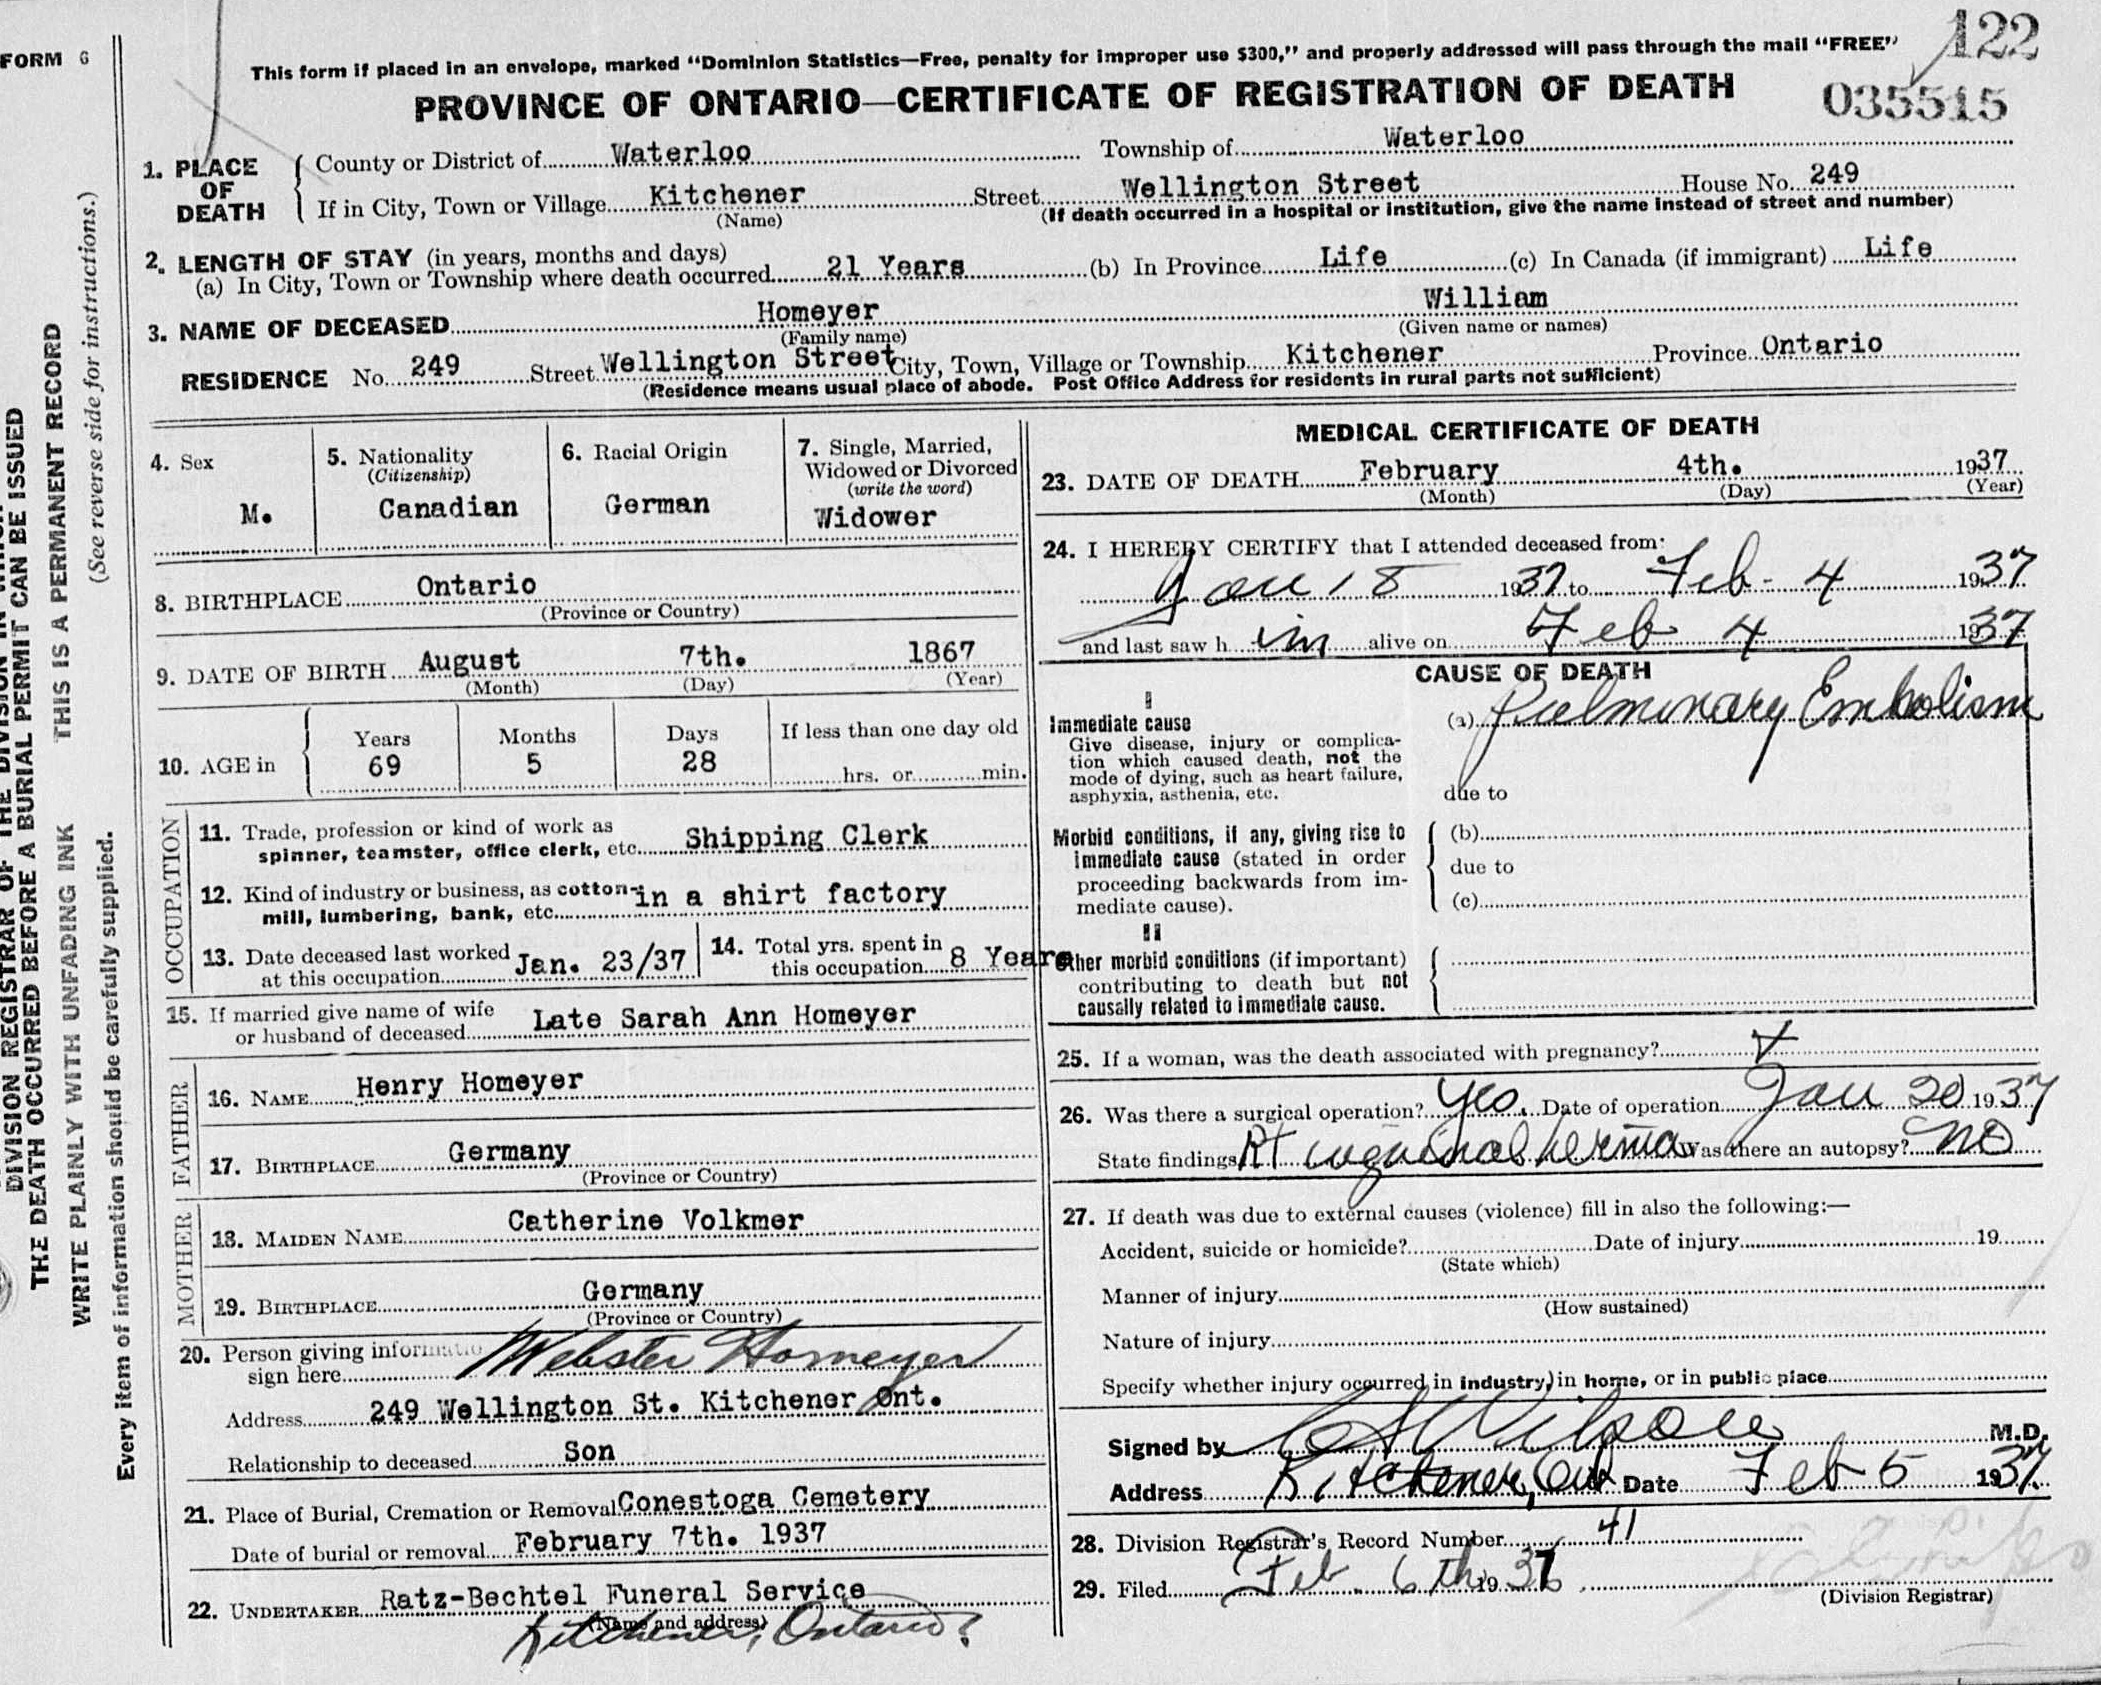 FORM 6
122
This form if placed in an envelope, marked "Dominion Statistics—Free, penalty for improper use $300," and properly addressed will pass through the mail "FREE"
PROVINCE OF ONTARIO—CERTIFICATE OF REGISTRATION OF DEATH
035515
1. PLACE OF DEATH
County or District of Waterloo Township of Waterloo
If in City, Town or Village Kitchener Street Wellington Street House No. 249
(Name) (If death occurred in a hospital or institution, give the name instead of street and number)
2. LENGTH OF STAY (in years, months and days)
(a) In City, Town or Township where death occurred 21 Years (b) In Province Life (c) In Canada (if immigrant) Life
3. NAME OF DECEASED Homeyer William
(Family name) (Given name or names)
RESIDENCE No. 249 Street Wellington Street City, Town, Village or Township Kitchener Province Ontario
(Residence means usual place of abode. Post Office Address for residents in rural parts not sufficient)
4. Sex
M.
5. Nationality
(Citizenship)
Canadian
6. Racial Origin
German
7. Single, Married,
Widowed or Divorced
(write the word)
Widower
8. BIRTHPLACE Ontario
(Province or Country)
9. DATE OF BIRTH August 7th. 1867
(Month) (Day) (Year)
10. AGE in
Years Months Days If less than one day old
69 5 28 hrs. or min.
OCCUPATION
11. Trade, profession or kind of work as
spinner, teamster, office clerk, etc. Shipping Clerk
12. Kind of industry or business, as cotton-
mill, lumbering, bank, etc. in a shirt factory
13. Date deceased last worked
at this occupation Jan. 23/37
14. Total yrs. spent in
this occupation 8 Years
15. If married give name of wife
or husband of deceased Late Sarah Ann Homeyer
FATHER
16. NAME Henry Homeyer
17. BIRTHPLACE Germany
(Province or Country)
MOTHER
18. MAIDEN NAME Catherine Volkmer
19. BIRTHPLACE Germany
(Province or Country)
20. Person giving informatio
sign here Webster Homeyer
Address 249 Wellington St. Kitchener Ont.
Relationship to deceased Son
21. Place of Burial, Cremation or Removal Conestoga Cemetery
Date of burial or removal February 7th. 1937
22. UNDERTAKER Ratz-Bechtel Funeral Service
(Name and address)
Kitchener, Ontario
MEDICAL CERTIFICATE OF DEATH
23. DATE OF DEATH February 4th. 1937
(Month) (Day) (Year)
24. I HEREBY CERTIFY that I attended deceased from:
Jan 18 1937 to Feb - 4 1937
and last saw h im alive on Feb 4 1937
CAUSE OF DEATH
I
Immediate cause
Give disease, injury or complica-
tion which caused death, not the
mode of dying, such as heart failure,
asphyxia, asthenia, etc.
(a) Pulmonary Embolism
due to
Morbid conditions, if any, giving rise to
immediate cause (stated in order
proceeding backwards from im-
mediate cause).
(b)
due to
(c)
II
Other morbid conditions (if important)
contributing to death but not
causally related to immediate cause.
25. If a woman, was the death associated with pregnancy?
26. Was there a surgical operation? Yes. Date of operation Jan 20 1937
State findings Rt inguinal hernia Was there an autopsy? no
27. If death was due to external causes (violence) fill in also the following:—
Accident, suicide or homicide? Date of injury 19
(State which)
Manner of injury
(How sustained)
Nature of injury
Specify whether injury occurred in industry, in home, or in public place
Signed by Wilson M.D.
Address Kitchener, Ont Date Feb 5 1937
28. Division Registrar's Record Number 41
29. Filed Feb. 6th 1937
(Division Registrar)
DIVISION REGISTRAR OF THE DIVISION IN WHICH
THE DEATH OCCURRED BEFORE A BURIAL PERMIT CAN BE ISSUED
WRITE PLAINLY WITH UNFADING INK THIS IS A PERMANENT RECORD
Every item of information should be carefully supplied. (See reverse side for instructions.)